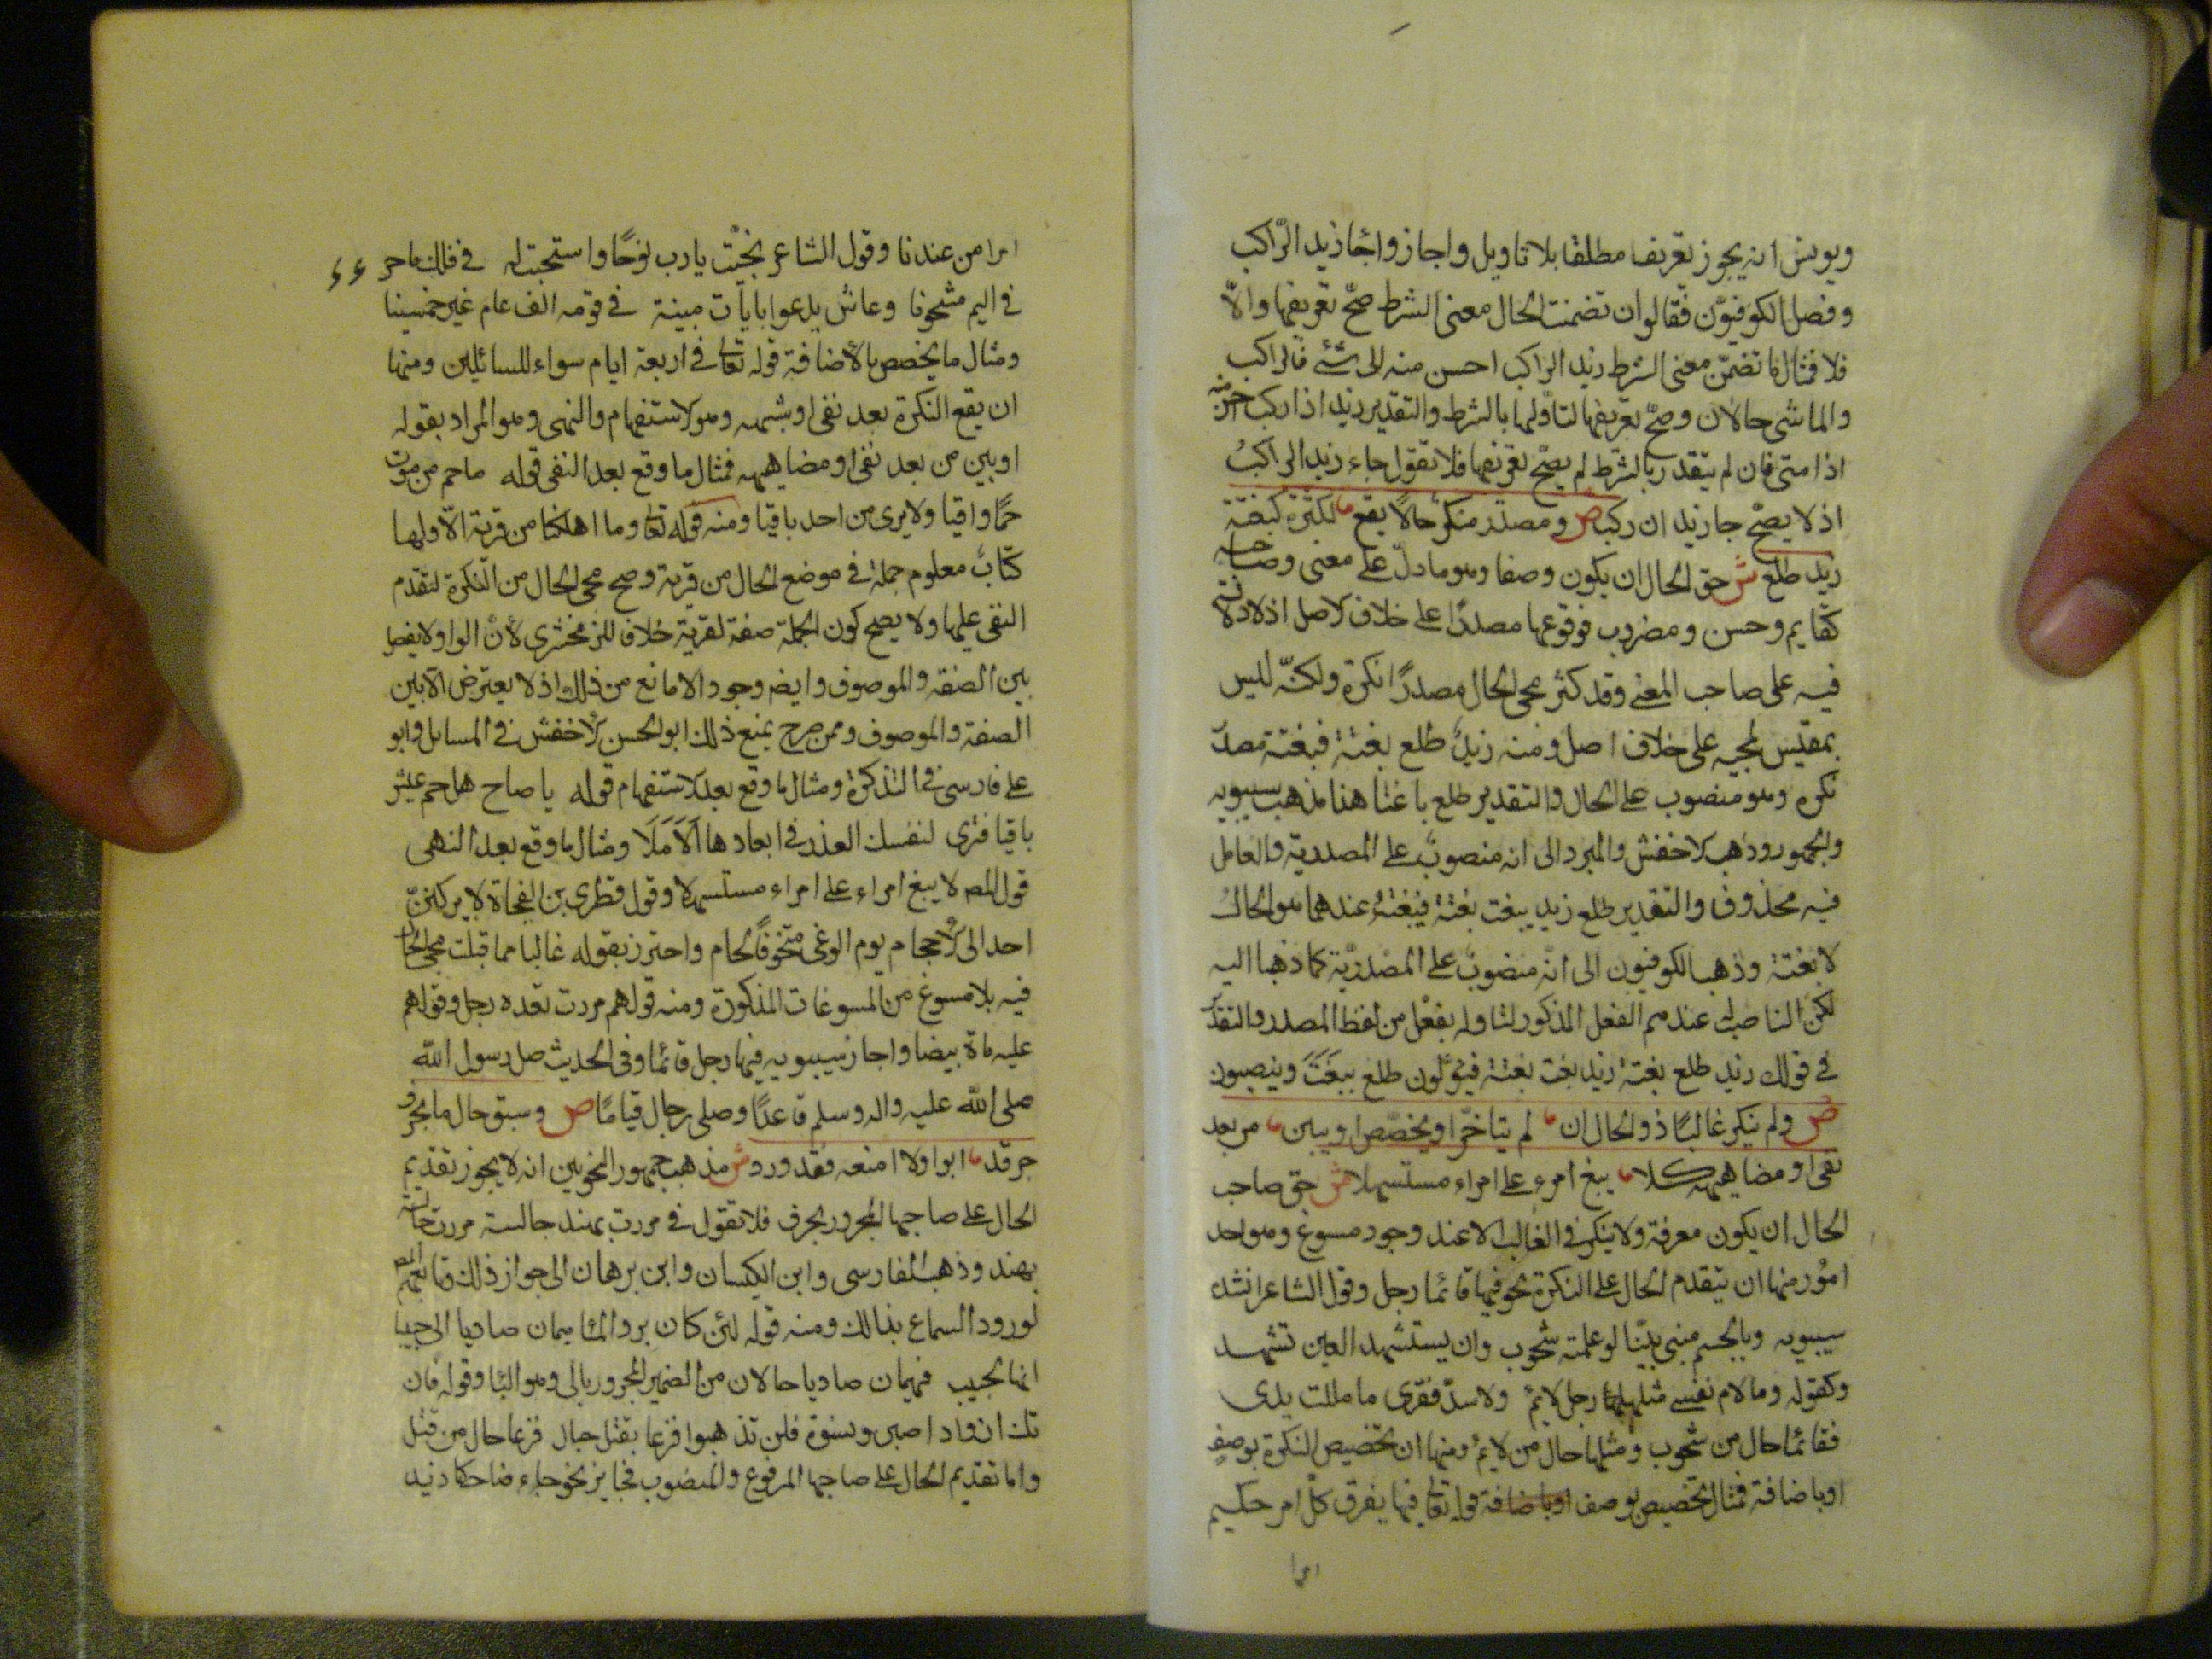 ويونس انه يجوز تعريفه مطلقا بلا تاويل واجازوا جا زيد الرّاكب
وفصل الكوفيوّن فقالوا ان تضمنت الحال معنى الشرط صحّ تعريفها والاّ
فلا فمثال ما تضمّن معنى الشرط زيد الراكب احسن منه الماشى فالراكب
والماشى حالان وصحّ تعريفهما لتاوّلهما بالشرط والتقدير زيد اذا ركب احسن منه
اذا مشى فان لم يتقدر بالشرط لم يصحّ تعريفها فلا تقول جاء زيد الراكبَ
اذ لا يصحّ جا زيد ان ركب ص ومصدر منكر حالا يقع بكثرة كبغتة
زيد طلع ش حق الحال ان يكون وصفا وهو ما دلّ على معنى وصاحبه
كقايم وحسن ومضروب فوقوعها مصدرًا على خلاف الاصل اذ لا دلالة
فيه على صاحب المعنى وقد كثر مجى الحال مصدرًا نكرة ولكنّه ليس
بمقيس لمجيه على خلاف اصل ومنه زيدٌ طلع بغتة فبغتة مصدر
نكرة وهو منصوب على الحال والتقدير طلع باغتا هذا مذهب سيبويه
والجمهور وذهب الاخفش والمبرد الى انه منصوب على المصدرية والعامل
فيه محذوف والتقدير طلع زيد يبغت بغتة فيبغت عندهما هو الحال
لا بغتة وذهب الكوفيون الى انّه منصوب على المصدريّة كما ذهبا اليه
لكن الناصب له عندهم الفعل المذكور لتاوله بفعل من لفظ المصدر والتقدير
فى قولك زيد طلع بغتة زيد بغت بغتة فيئوّلون طلع ببغت وينصبون
ص ولم ينكر غالبًا ذو الحال ان لم يتاخّر او يخصّص او يبن من بعد
نفى او مضاهيه كلا يبغ امرء على امراء مستسهلا ش حق صاحب
الحال ان يكون معرفة ولا ينكر فى الغالب الا عند وجود مسوغ وهو احد
امور منها ان يتقدم الحال على النكرة نحو فيها قائما رجل وقول الشاعر انشده
سيبويه وبالجسم منى بيّنا لو علمته شحوب وان يستشهد العين تشهد
وكقوله وما لام نفسى مثلها لها رجل لايم ولا سدّ فقرى ما ملكت يدى
فقائما حال من شحوب ومثلها حال من لايم ومنها ان تخصيص النكرة بوصف
او باضافة فمثال تخصيص بوصف او باضافة قوله تعالى فيها يفرق كلّ امر حكيم
امرا
امرا من عندنا وقول الشاعر نجّيت يا رب نوحًا واستجبت له فى فلك ماخر
فى اليم مشحونا وعاش يدعوا بايات مبينة فى قومه الف عام غير خمسينا
ومثال ما يخصص بالاضافة قوله تعالى فى اربعة ايام سواء للسائيلين ومنها
ان يقع النكرة بعد نفى او شبهه وهو الاستفهام والنهى وهو المراد بقوله
او يبن من بعد نفى او مضاهيه فمثال ما وقع بعد النفى قوله ما حم من موت
حمًا واقيا ولا يرى من احد باقيا ومنه قوله تعالى وما اهلكنا من قرية الاّ ولها
كتاب معلوم جملة فى موضع الحال من قرية وصح مجى الحال من النكرة لتقدم
النفى عليها ولا يصح كون الجملة صفة لقرية خلاف للزمخشرى لأنّ الواو لا يفصل
بين الصفة والموصوف وايضا وجود الا مانع من ذلك اذ لا يعترض الاّ بين
الصفة والموصوف وممن صرح بمنع ذلك ابو الحسن الأخفش فى المسايل وابو
على فارسى فى التذكرة ومثال ما وقع بعد الاستفهام قوله يا صاح هل حم عيش
باقيا فترى لنفسك العذر فى ابعادها الاملا ومثال ما وقع بعد النهى
قول المص لا يبغ امراء على امراء مستسهلا وقول قطرى بن الفجاة لا يركننّ
احد الى الأحجام يوم الوغى متخوفًا لحمام واحترز بقوله غالبا مما قبلت مجى الحال
فيه بلا مسوغ من المسوغات المذكورة ومنه قولهم مررت بقعده رجل وقولهم
عليه ماة بيضا واجاز سيبويه فيها رجل قائما وفى الحديث صل رسول الله
صلى الله عليه واله وسلم قاعدًا وصلى رجال قيامًا ص وسبق حال ما بحرف
جر قد ابوا ولا امنعه فقد ورد ش مذهب جمهور النحويين انه لا يجوز تقديم
الحال على صاحبها المجرور بحرف فلا تقول فى مررت بهند جالسة مررت جالسة
بهند وذهب الفارسى وابن الكيسان وابن برهان الى جواز ذلك وتابعهم المص
لورود السماع بذالك ومنه قوله لئن كان برد الماء هيمان صاديا الى حبيبا
انها لحبيب فهيمان صاديا حالان من الضمير المجرور بالى وهو اليا وقوله فان
تك اذواد اصبن ونسوة فلن تذهبوا فزعا بقتل حبال فزعا حال من قتل
واما تقديم الحال على صاحبها المرفوع والمنصوب فجايز نحو جاء ضاحكا زيد